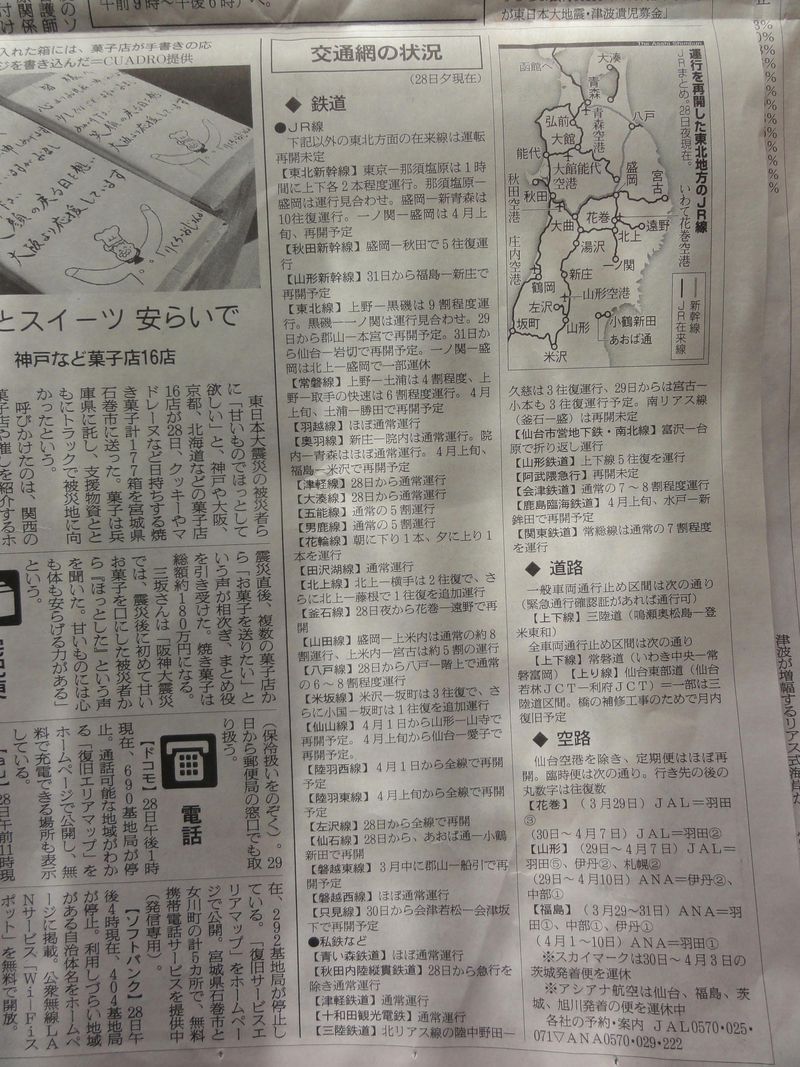 交通網の状況
(28日夕現在)
◆ 鉄道
●JR線
下記以外の東北方面の在来線は運転
再開未定
【東北新幹線】東京ー那須塩原は1時
間に上下各2本程度運行。那須塩原ー
盛岡は運行見合わせ。盛岡ー新青森は
10往復運行。一ノ関ー盛岡は4月上
旬、再開予定
【秋田新幹線】盛岡ー秋田で5往復運
行
【山形新幹線】31日から福島ー新庄で
再開予定
【東北線】上野ー黒磯は9割程度運
行。黒磯ー一ノ関は運行見合わせ。29
日から郡山ー本宮で再開予定。31日
から仙台ー岩切で再開予定。一ノ関ー盛
岡は北上ー盛岡で一部運休
【常磐線】上野ー土浦は4割程度、上
野ー取手の快速は6割程度運行。4月
上旬、土浦ー勝田で再開予定
【羽越線】ほぼ通常運行
【奥羽線】新庄ー院内は通常運行。院
内ー青森はほぼ通常運行。4月上旬、
福島ー米沢で再開予定
【津軽線】28日から通常運行
【大湊線】28日から通常運行
【五能線】通常の5割運行
【男鹿線】通常の5割運行
【花輪線】朝に下り1本、夕に上り1
本を運行
【田沢湖線】通常運行
【北上線】北上ー横手は2往復で、さ
らに北上ー藤根で1往復を追加運行
【釜石線】28日夜から花巻ー遠野で再
開
【山田線】盛岡ー上米内は通常の約8
割運行、上米内ー宮古は約5割の運行
【八戸線】28日から八戸ー階上で通常
の6～8割程度運行
【米坂線】米沢ー坂町は3往復で、さ
らに小国ー坂町では1往復を追加運行
【仙山線】4月1日から山形ー山寺で
再開予定。4月上旬から仙台ー愛子で
再開予定。
【陸羽西線】4月1日から全線で再開
予定
【陸羽東線】4月上旬から全線で再開
予定
【左沢線】28日から全線で再開
【仙石線】28日から、あおば通ー小鶴
新田で再開
【磐越東線】3月中に郡山ー船引で再
開予定
【磐越西線】ほぼ通常運行
【只見線】30日から会津若松ー会津坂
下で再開予定
●私鉄など
【青い森鉄道】ほぼ通常運行
【秋田内陸縦貫鉄道】28日から急行を
除き通常運行
【津軽鉄道】通常運行
【十和田観光電鉄】通常運行
【三陸鉄道】北リアス線の陸中野田ー
久慈は3往復運行、29日からは宮古ー
小本も3往復運行予定。南リアス線
(釜石ー盛)は再開未定
【仙台市営地下鉄・南北線】富沢ー台
原で折り返し運行
【山形鉄道】上下線5往復を運行
【阿武隈急行】再開未定
【会津鉄道】通常の7～8割程度運行
【鹿島臨海鉄道】4月上旬、水戸ー新
鉾田で再開予定
【関東鉄道】常総線は通常の7割程度
を運行
◆ 道路
一般車両通行止め区間は次の通り
(緊急通行確認証があれば通行可)
【上下線】三陸道(鳴瀬奥松島ー登
米東和)
全車両通行止め区間は次の通り
【上下線】常磐道(いわき中央ー常
磐富岡)【上り線】仙台東部道(仙台
若林JCTー利府JCT)=一部は三
陸道区間。橋の補修工事のためで月内
復旧予定
◆ 空路
仙台空港を除き、定期便はほぼ再
開。臨時便は次の通り。行き先の後の
丸数字は往復数
【花巻】(3月29日)JAL=羽田
③
(30日ー4月7日)JAL=羽田②
【山形】(29日ー4月7日)JAL=
羽田⑤、伊丹②、札幌②
(29日ー4月10日)ANA=伊丹②、
中部①
【福島】(3月29～31日)ANA=羽
田①、中部①、伊丹①
(4月1～10日)ANA=羽田①
※スカイマークは30日～4月3日の
茨城発着便を運休
※アシアナ航空は仙台、福島、茨
城、旭川発着の便を運休中
各社の予約・案内 JAL0570・025・
071▽ANA0570・029・222
The Asahi Shimbun
運行を再開した東北地方のJR線
JRまとめ。28日夜現在。
函館へ
大湊
青森
青森空港
八戸
弘前
大館
能代
大館能代空港
盛岡
宮古
いわて花巻空港
秋田空港
秋田
花巻
遠野
大曲
北上
湯沢
一ノ関
庄内空港
新庄
鶴岡
山形空港
左沢
小鶴新田
坂町
山形
あおば通
米沢
新幹線
JR在来線
が東日本大地震・津波遺児募金」
入れた箱には、菓子店が手書きの応
ジを書き込んだ=CUADRO提供
とスイーツ 安らいで
神戸など菓子店16店
東日本大震災の被災者ら
に「甘いものでほっとして
欲しい」と、神戸や大阪、
京都、北海道などの菓子店
16店が28日、クッキーやマ
ドレーヌなど日持ちする焼
き菓子計177箱を宮城県
石巻市に送った。菓子は兵
庫県に託し、支援物資とと
もにトラックで被災地に向
かったという。
呼びかけたのは、関西の
菓子店や催しを紹介するホ
震災直後、複数の菓子店か
ら「お菓子を送りたい」と
いう声が相次ぎ、まとめ役
を引き受けた。焼き菓子は
総額約180万円になる。
三坂さんは「阪神大震災
では、震災後に初めて甘い
お菓子を口にした被災者か
ら『ほっとした』という声
を聞いた。甘いものには心
も体も安らげる力がある」
という。
(保冷扱いをのぞく)。29
日から郵便局の窓口でも取
り扱う。
電話
【ドコモ】28日午後1時
現在、690基地局が停
止。通話可能な地域がわか
る「復旧エリアマップ」を
ホームページで公開し、無
料で充電できる場所も表示
している。
【au】28日午前11時現
在、292基地局が停止し
ている。「復旧サービスエ
リアマップ」をホームペー
ジで公開。宮城県石巻市と
女川町の計5カ所で、無料
携帯電話サービスを提供中
(発信専用)。
【ソフトバンク】28日午
後4時現在、404基地局
が停止。利用しづらい地域
がある自治体名をホームペ
ージに掲載。公衆無線LA
Nサービス「WiFiス
ポット」を無料で開放。